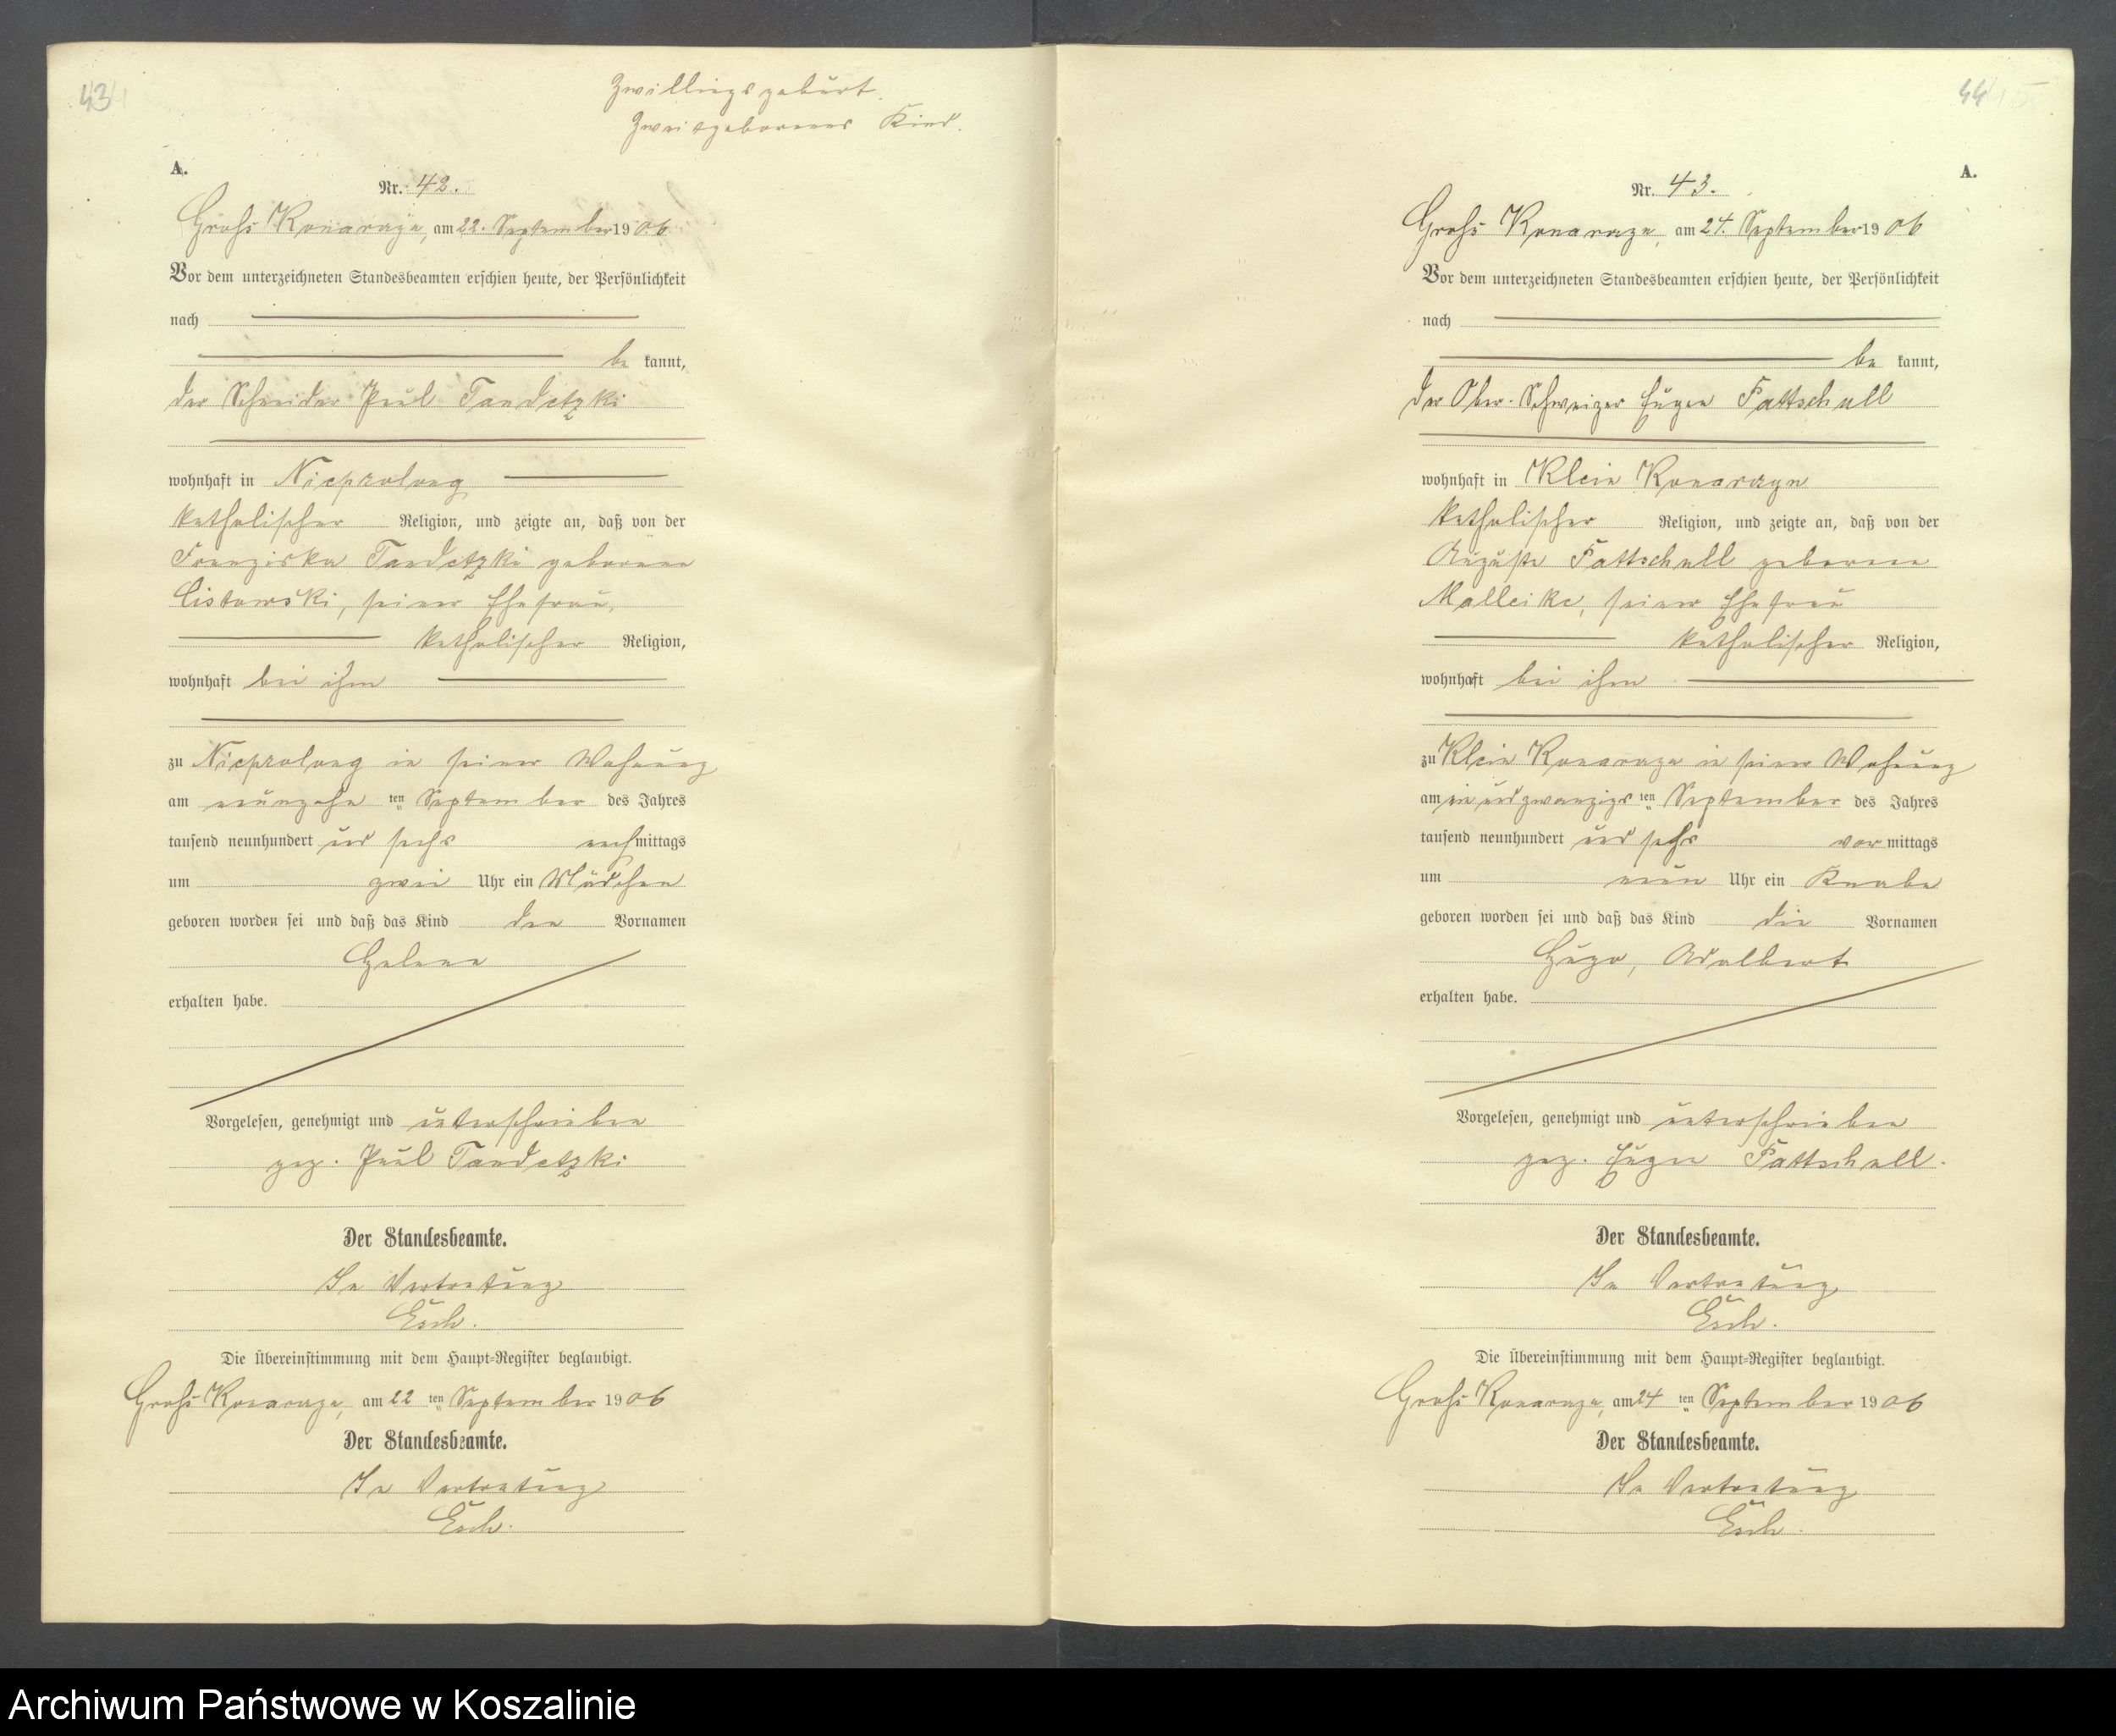 43
Zwillingsgeburt.
Zweitgeborenes Kind.
A.
Nr. 42.
Groß Konarzyn, am 22. September 1906
Vor dem unterzeichneten Standesbeamten erschien heute, der Persönlichkeit
nach
be kannt,
der Schneider Paul Tandetzki
wohnhaft in Niepzolong
katholischer Religion, und zeigte an, daß von der
Franziska Tandetzki geborenen
Cistowski, seiner Ehefrau,
katholischer Religion,
wohnhaft bei ihm
zu Niepzolong in seiner Wohnung
am neunzehn ten September des Jahres
tausend neunhundert und sechs nachmittags
um zwei Uhr ein Mädchen
geboren worden sei und daß das Kind den Vornamen
Helene
erhalten habe.
Vorgelesen, genehmigt und unterschrieben
gez. Paul Tandetzki
Der Standesbeamte.
In Vertretung
Esch.
Die Übereinstimmung mit dem Haupt=Register beglaubigt.
Groß Konarzyn, am 22 ten September 1906
Der Standesbeamte.
In Vertretung
Esch.
44
A.
Nr. 43.
Groß Konarzyn, am 24. September 1906
Vor dem unterzeichneten Standesbeamten erschien heute, der Persönlichkeit
nach
be kannt,
der Ober-Schweizer Eugen Fattschall
wohnhaft in Klein Konarzyn
katholischer Religion, und zeigte an, daß von der
Auguste Fattschall geborene
Malleike, seiner Ehefrau
katholischer Religion,
wohnhaft bei ihm
zu Klein Konarzyn in seiner Wohnung
am ein und zwanzigs ten September des Jahres
tausend neunhundert und sechs vormittags
um neun Uhr ein Knabe
geboren worden sei und daß das Kind die Vornamen
Hugo, Adalbert
erhalten habe.
Vorgelesen, genehmigt und unterschrieben
gez. Eugen Fattschall.
Der Standesbeamte.
In Vertretung
Esch.
Die Übereinstimmung mit dem Haupt=Register beglaubigt.
Groß Konarzyn, am 24 ten September 1906
Der Standesbeamte.
In Vertretung
Esch.
Archiwum Państwowe w Koszalinie